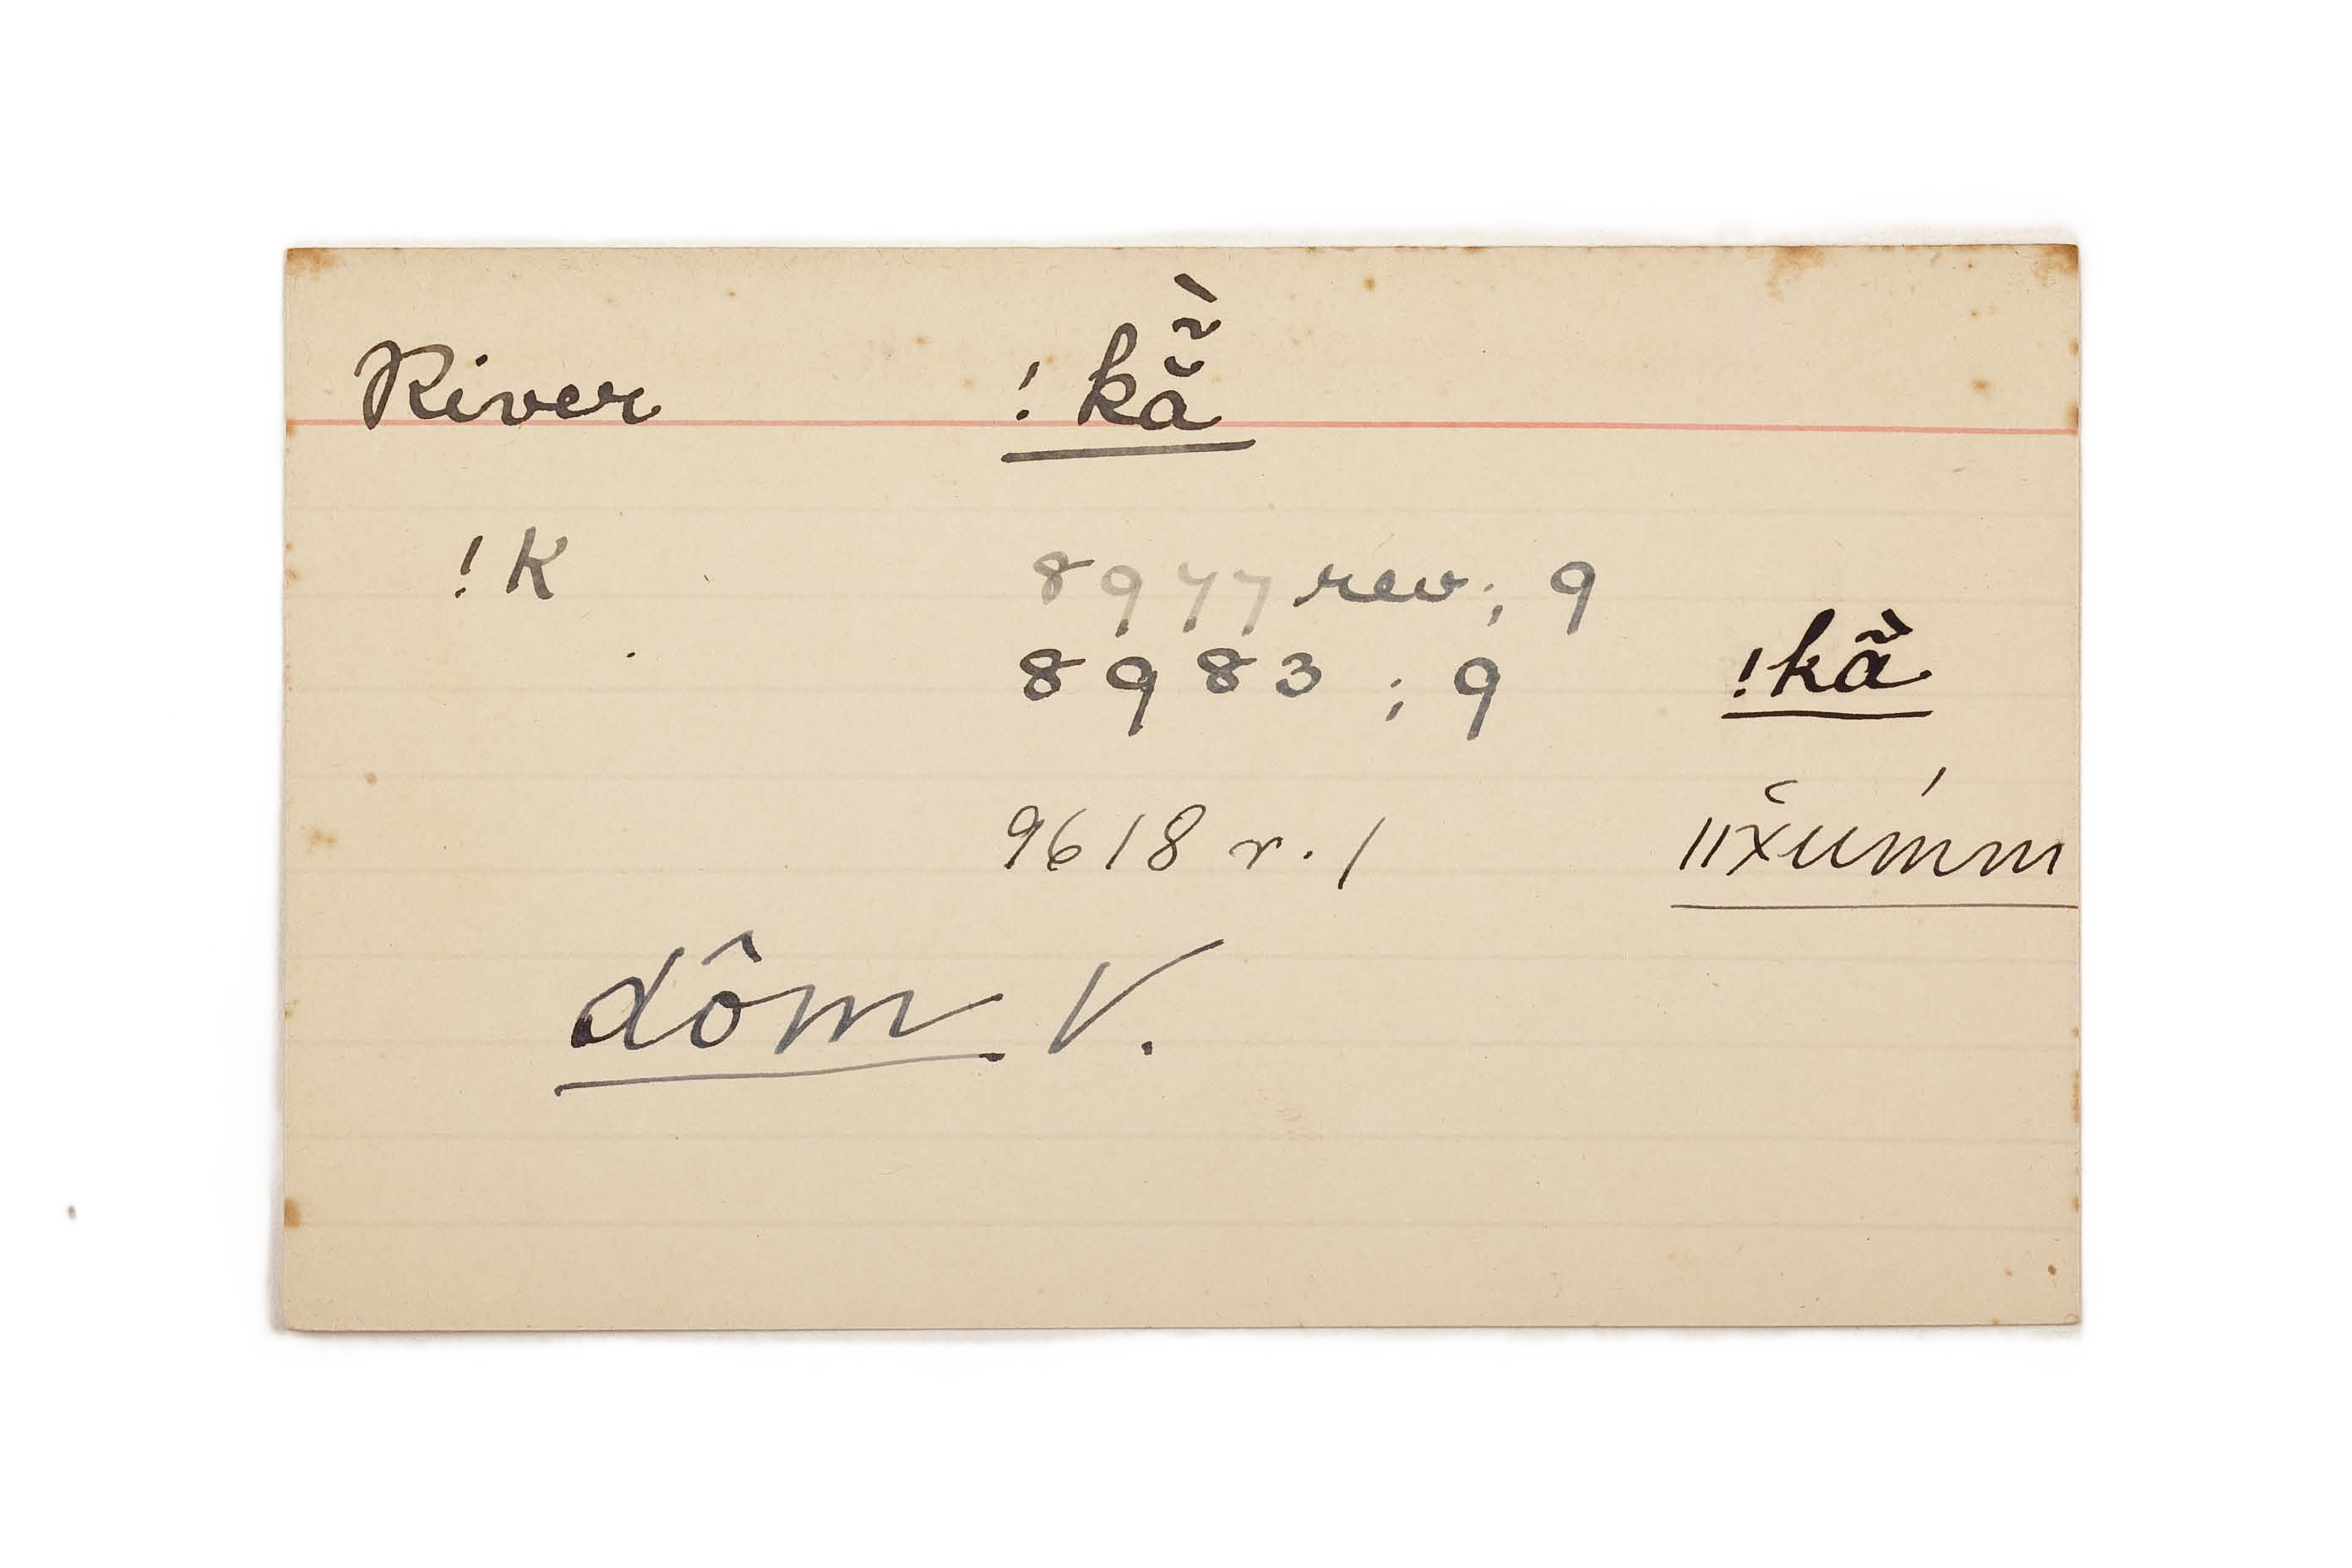 River !kã̆̃̀
!K 8977 rev; 9
8983 ; 9 !kã̀
9618 r. 1 ǁx̆um̆́m
dôm V.